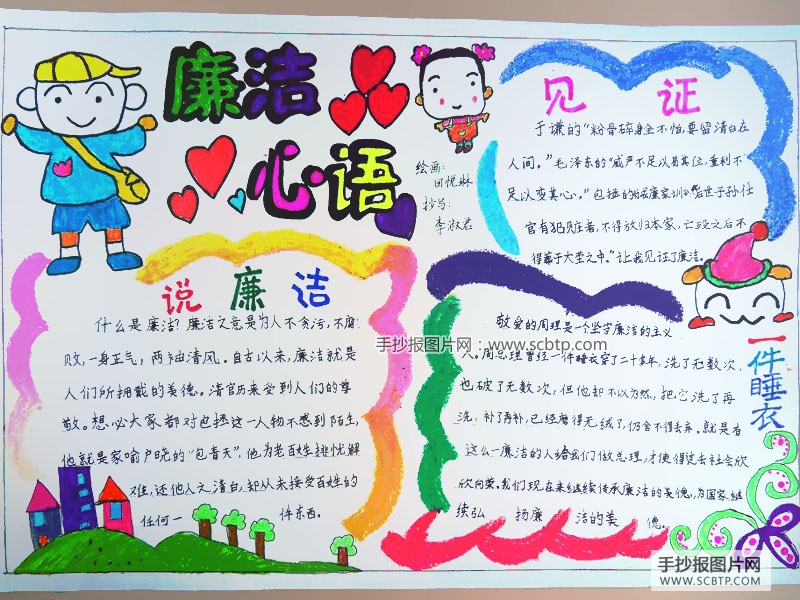 廉洁
心语
绘画:
田悦琳
抄写:
李淑君
见 证
于谦的“粉骨碎身全不怕,要留清白在
人间。”毛泽东的“威声不足以易其位,重利不
足以变其心。”包拯的 家训:后世子孙仕
官有犯赃者,不得放归本家,亡殁之后不
得葬于大茔之中。”让我见证了廉洁。
说廉洁
什么是廉洁?廉洁之意是为人不贪污,不腐
败,一身正气,两袖清风。自古以来,廉洁就是
人们所拥戴的美德。清官历来受到人们的尊
敬。想必大家都对包拯这一人物不感到陌生,
他就是家喻户晓的“包青天”,他为老百姓排忧解
难,还他人之清白,却从未接受百姓的
任何一 件东西。
一件睡衣
敬爱的周理是一个坚守廉洁的主义
人。周总理曾经一件睡衣穿了二十多年,洗了无数次,
也破了无数次,但他却不以为然,把它洗了再
洗,补了再补,已经磨得无绒了,仍舍不得丢弃。就是有
这么一廉洁的人给我们做总理,才使得过去社会欣
欣向荣。我们现在来继续传承廉洁的美德,为国家继
续弘 扬廉 洁的美 德。
手抄报图片网:www.scbtp.com
手抄报图片网
WWW.SCBTP.COM